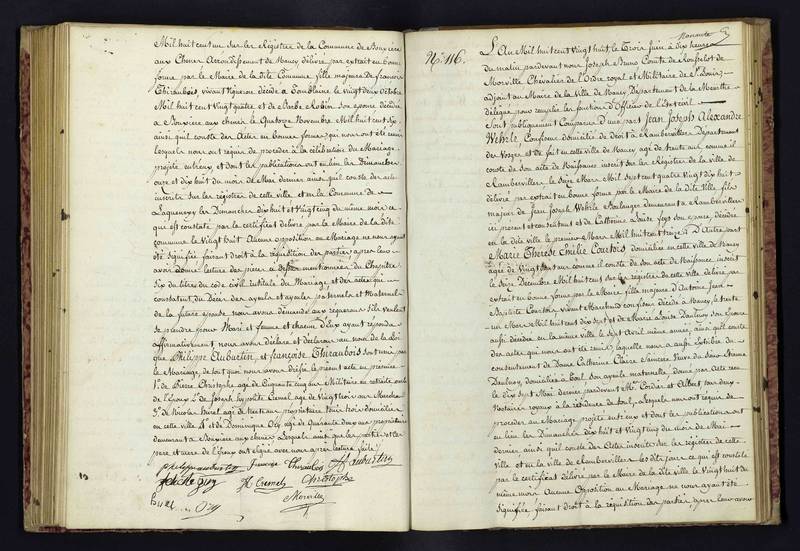 Mil huit cent un sur les Registres de la Commune de Bouxières
aux Chênes Arrondissement de Nancy délivré par extrait en bonne
forme par le Maire de la dite Commune, fille majeure de françois
Thiraubois vivant Vigneron décédé à Tomblaine le vingt deux octobre
Mil huit cent vingt quatre et de Barbe Robin son épouse décédée
à Bouxière aux chênes le Quatorze Novembre Mil huit cent six
ainsi qu'il conste des Actes en bonne forme qui nous ont été remis
lesquels nous ont requis de procéder à la célébration du Mariage
projeté entr'eux et dont les publications ont eu lieu les Dimanches
onze et dix huit du mois de Mai dernier ainsi qu'il conste des actes
inscrits sur les registres de cette ville et en la Commune de
Laquenexy les Dimanches dix huit et vingt cinq du même mois ce
qui est constaté par le certificat délivré par le Maire de la dite
commune le vingt huit Aucune opposition au Mariage ne nous ayant
été signifiée faisant droit à la réquisition des parties après leur
avoir donné lecture des pièces ci dessus mentionnées du Chapitre
Six du titre du code civil intitulé du Mariage et des actes qui
constatent du décès des ayeuls et ayeules paternels et Maternels
de la future épouse nous avons demandé aux requérans s'ils veulent
se prendre pour Mari et femme et chacun d'eux ayant répondu
affirmativement, nous avons déclaré et déclarons au nom de la Loi
que Philippe Aubertin et françoise Thiraubois sont unis par
le Mariage, de tout quoi nous avons dressé le présent acte en présence
1° de Pierre Christophe âgé de Cinquante cinq ans Militaire en retraite oncle
de l'époux 2° de Joseph hypolite Cremel âgé de vingt trois ans Marchand
3° de Nicolas Burel âgé de trente ans propriétaire tous trois domiciliés
en cette ville 4° et de Dominique Ory âgé de Quarante deux ans propriétaire
demeurant à Bouxière aux chênes lesquels ainsi que les parties et les
père et mère de l'époux ont signé avec nous après lecture faite
philippe aubertin françoise Thiraubois aubertin
Cremel Christophe
Burel Ory Morville
N°. 116.
L'An Mil huit cent vingt huit, le Trois Juin à dix heures
du matin pardevant nous Joseph Bruno Comte de Rouselot de
Morville Chevalier de l'Ordre royal et Militaire de St Louis,
adjoint au Maire de la ville de Nancy Département de la Meurthe
délégué pour remplir les fonctions d'Officier de l'état civil
Sont publiquement Comparus d'une part Jean Joseph Alexandre
Wehrlé, Confiseur domicilié de Droit à Rambervillers Département
des Vosges et de fait en cette ville de Nancy âgé de trente ans, comme il
conste de son acte de Naissance inscrit sur les Registres de la ville de
Rambervillers, le Seize Mars Mil Sept cent quatre Vingt dix huit
délivré par extrait en bonne forme par le Maire de la dite Ville fils
majeur de Jean Joseph Wehrlé Boulanger demeurant à Rambervillers
ici présent et consentant et de Catherine Louise fays son épouse, décédée
en la dite ville le premier Mars Mil huit cent treize & d'autre part
Marie Thérèse Émilie Courtois domiciliée en cette ville de Nancy
âgée de Vingt sept ans comme il conste de son acte de Naissance inscrit
le Seize Décembre Mil huit cent sur les registres de cette ville délivré par
extrait en bonne forme par le Maire fille majeure d'Antoine Jean
Baptiste Courtois, vivant Marchand confiseur décédé à Nancy, le trente
un Mars Mil huit cent dix sept et de Marie Louise son épouse
aussi décédée en la même ville le Sept Avril même année, ainsi qu'il conste
des actes qui nous ont été remis, laquelle nous a aussi exhibé du
consentement de Dame Catherine Claire Veuve du Sieur Étienne
domiciliée à Toul, son ayeule maternelle, donné par acte reçu
le dix sept Mai dernier pardevant Me Cordier et Albert tous deux
Notaires royaux à la résidence de Toul, Lesquels nous ont requis de
procéder au Mariage projeté entr'eux et dont les publications ont
eu lieu les Dimanches dix huit et Vingt cinq du mois de Mai
dernier ainsi qu'il conste des Actes inscrits sur les registres de cette
ville et en la ville de Rambervillers les dits jours ce qui est constaté
par le certificat délivré par le Maire de la dite Ville le Vingt huit du
même mois Aucune Opposition au Mariage ne nous ayant été
Signifiée, faisant droit à la réquisition des parties, après leur avoir